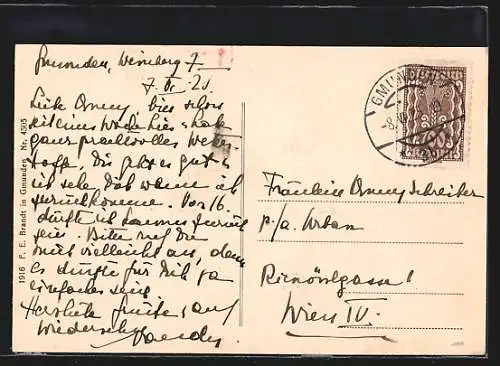 Gmunden, Weinberg 7
Liebe Ommy, bin schon
seit einer Woche hier u. habe
ganz prachtvolles Wetter.
Hoffe, Dir geht es gut u.
ich sehe Dich wenn ich
zurückkomme. Vor 16.
dürfte ich kaum zurück
sein. Bitte ruf Du
mich vielleicht an, denn
es dürfte für Dich ja
einfacher sein
Herzliche Grüße u. auf
Wiedersehen
1916 F. E. Brandt in Gmunden Nr. 4505
GMUNDEN
Fräulein Ommy Schreiber
p/a. Urban
Rienößlgasse
Wien IV.